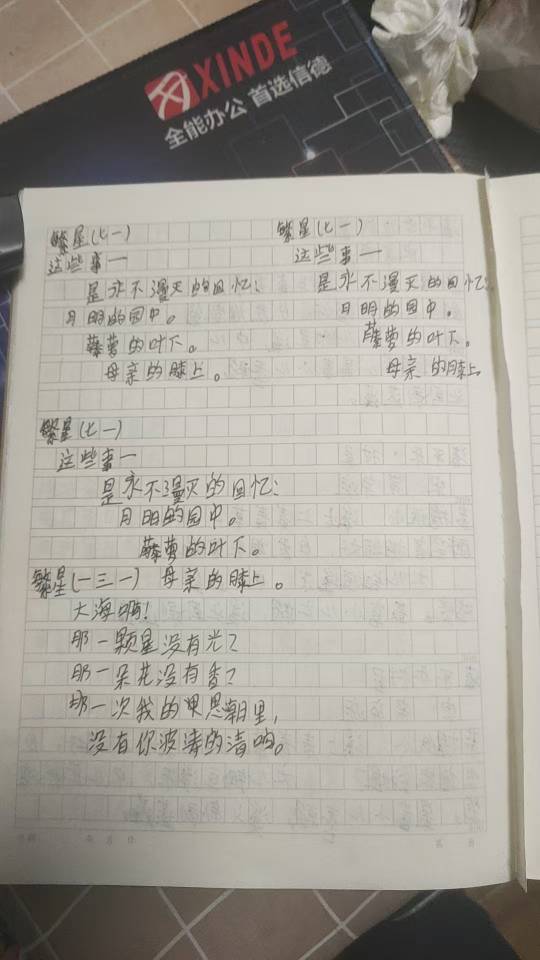 XINDE
全能办公 首选信德
繁星(七一)
这些事一
是永不漫灭的回忆：
月明的园中。
藤萝的叶下。
母亲的膝上。
繁星(七一)
这些事一
是永不漫灭的回忆：
月明的园中。
藤萝的叶下。
母亲的膝上
繁星(七一)
这些事一
是永不漫灭的回忆：
月明的园中。
藤萝的叶下。
母亲的膝上。
繁星(一三一)
大海啊!
那一颗星没有光？
那一朵花没有香？
那一次我的思朝里，
没有你波涛的清响。